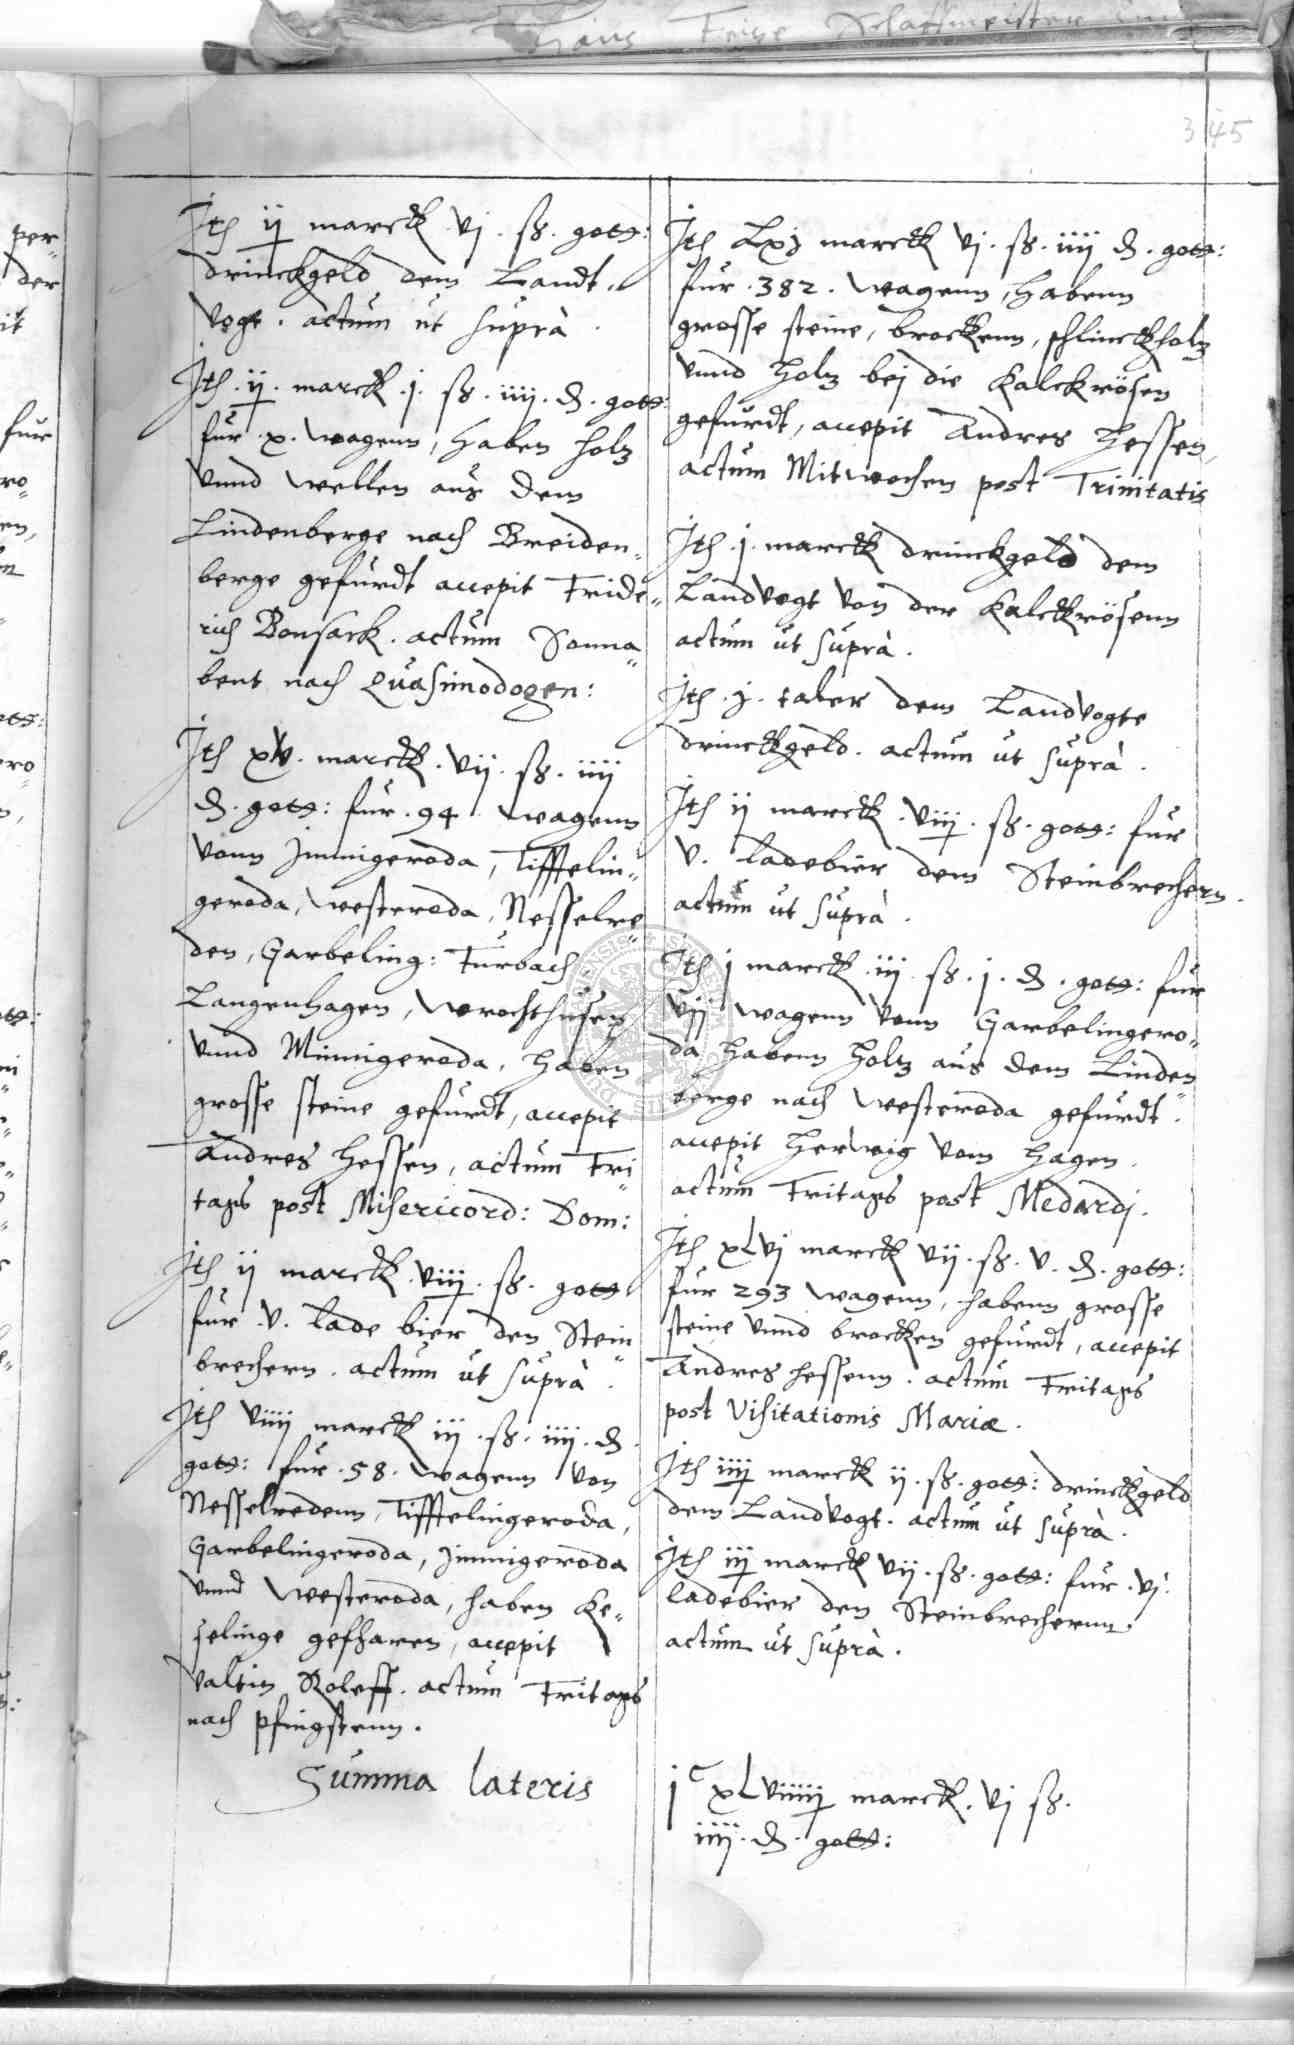 345
Jth ij marckͤ vj. ß. gott:
drinckgeld dem Landt„
vogt. actum ut suprà.
Jth. ij. marckͤ. j. ß. iiij. ₰. gott
fur .x. wagenn, haben holz
vnnd wellen aus dem
Lindenberge nach Breiden„
berge gefurdt accepit Fride„
rich Bonsack. actum Sonna„
bent nach Quasimodogen:
Jth xv. marckͤ. vij. ß. iiij
₰. gott: fur. 94. wagenn
vonn Jmmigeroda, Tifftelin„
geroda, westeroda, Nesselre„
den, Garbeling: Furbach
Langenhagen, wrochthusen
vnnd Minnigeroda, haben
grosse steine gefurdt, accepit
Andres Hessen, actum Fri„
tags post Misericord: Dom:
Jth ij marckͤ. viij. ß. gott
fur .v. lade bier den Stein„
brechern. actum ut suprà.
Jth viiij marckͤ iij. ß. iiij. ₰.
gott: fur. 58. wagenn von
Nesselredenn, Tifftelingeroda,
Garbelingeroda, Jmmigeroda
vnnd westeroda, haben Ke„
selinge gefharen, accepit
valtin Roleff. actum Fritags
nach pfingstenn.
Summa lateris
Jth Lxj marckͤ vj. ß. iiij ₰. gott:
fur. 382. wagenn, habenn
grosse steine, brockenn, schlinckholz
vnnd Holz bej die Kalckrösen
gefurdt, accepit Andres Hessen,
actum Mitwochen post Trinitatis
Jth. j. marckͤ drinckgeld dem
Landvogt von der Kalckrösenn
actum ut suprà.
Jth. j. taler dem Landvogte
drinckgeld. actum ut suprà.
Jth ij marckͤ. viij. ß. gott: fur
v. ladebier dem Steinbrechern.
actum ut suprà.
Jth j marckͤ iij. ß. j. ₰. gott: fur
vij wagenn vonn Garbelingero„
da habenn Holtz aus dem Linden„
berge nach westeroda gefurdt.
accepit Herwig vom Hagen.
actum Fritags post Medardj.
Jth xLvj marckͤ vij. ß. v. ₰. gott:
fur 293 wagenn, habenn grosse
steine vnnd brocken gefurdt, accepit
Andres Hessenn. actum Fritags
post Visitationis Mariæ.
Jth iiij marckͤ ij. ß. gott: drinckgeld
dem Landvogt. actum ut suprà.
Jth iij marckͤ vij. ß. gott: fur. vj.
ladebier den Steinbrechernn.
actum ut suprà.
jᶜ xLviiiij marckͤ. vj ß.
iiij. ₰. gott: